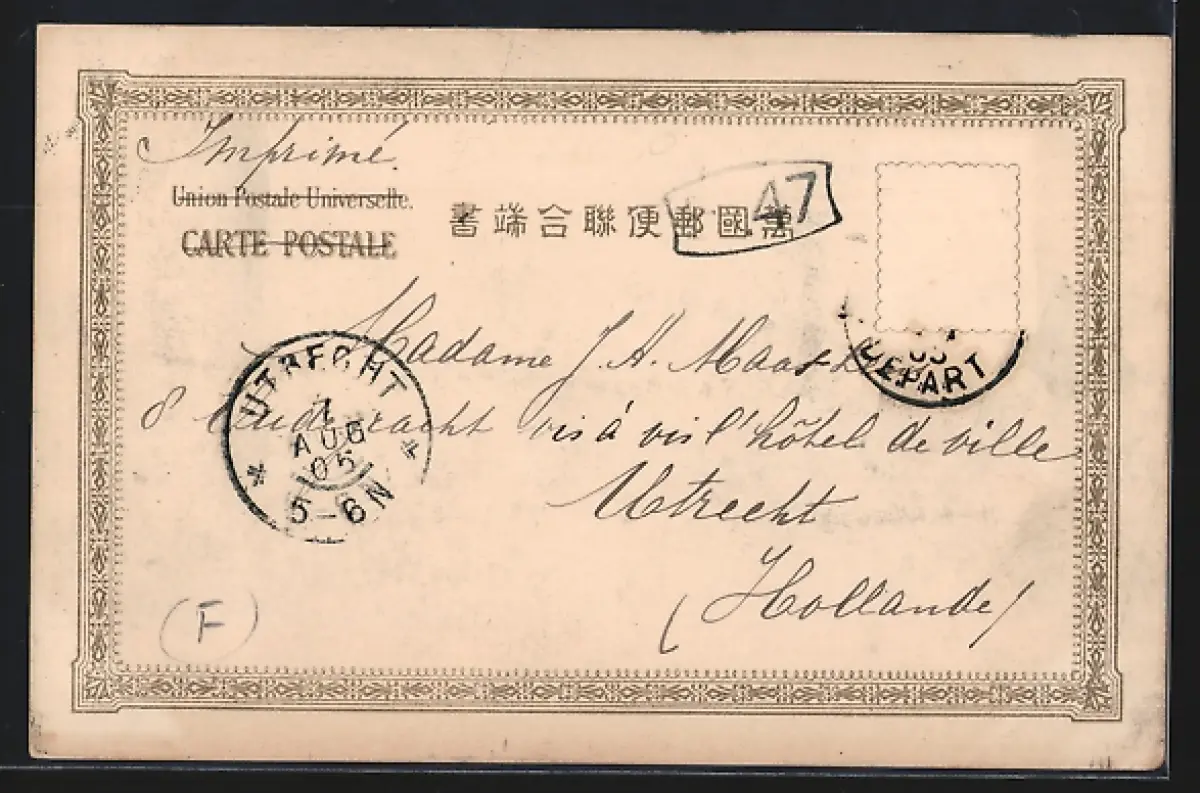 Imprimé
Union Postale Universelle.
CARTE POSTALE
萬國郵便聯合端書
A7
DEPART
Madame J. H.
8 vis à vis l'hôtel de ville
Utrecht
(Hollande)
UTRECHT
AUG
05
5-6N
(F)